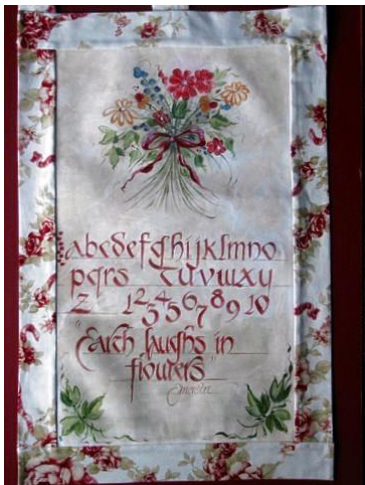 abcdefghijklmno
pqrs tuvwxy
z 12345678910
"Earth laughs in
flowers"